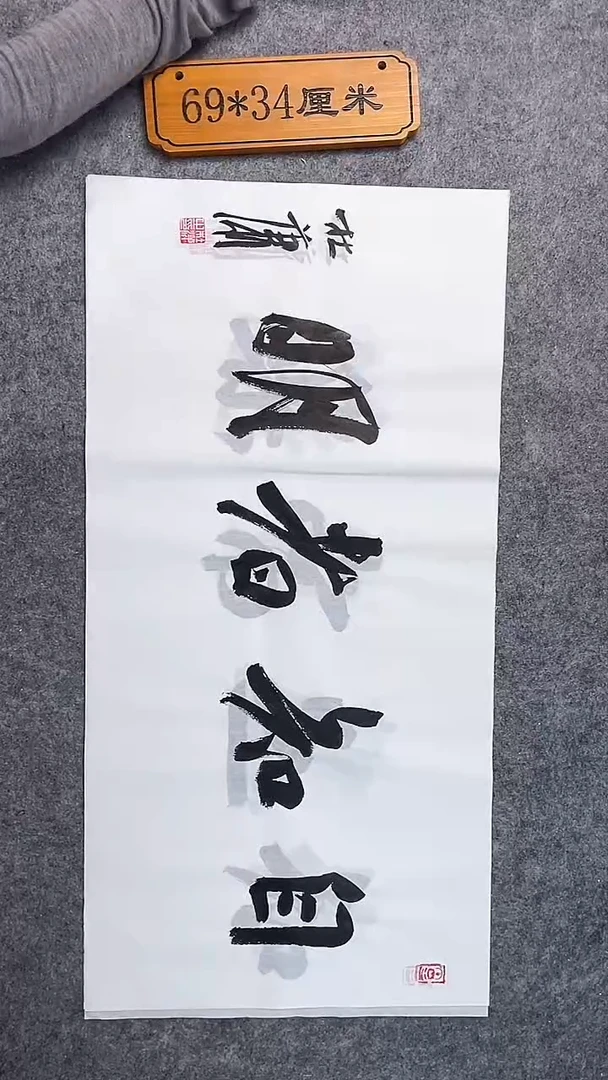 69*34厘米
自知者明